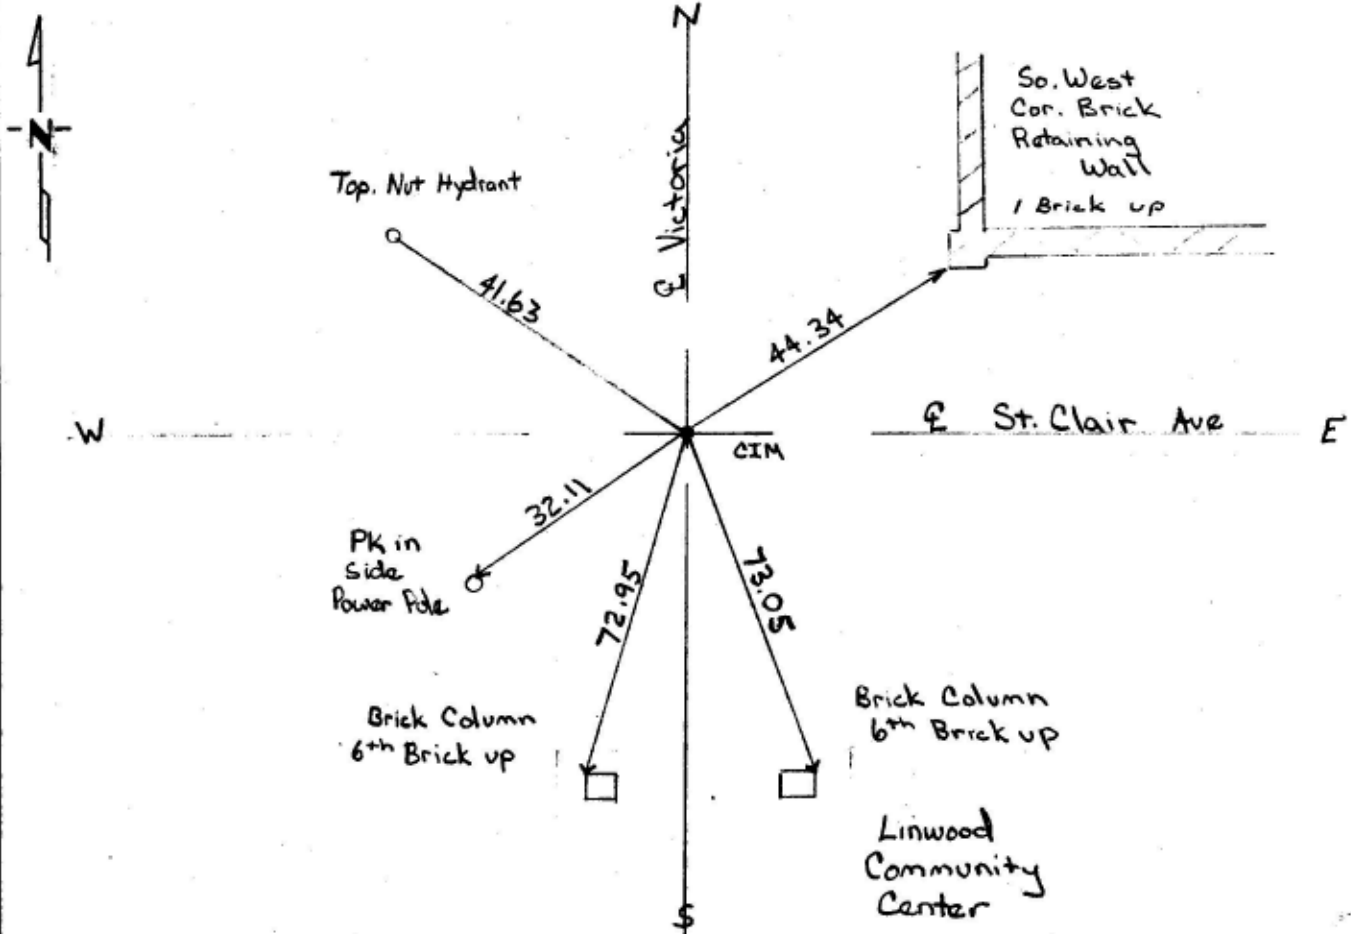 N
N
So. West
Cor. Brick
Retaining
Wall
1 Brick up
Top. Nut Hydrant
℄ Victoria
41.63
44.34
W
℄ St. Clair Ave
E
CIM
32.11
PK in
Side
Power Pole
72.95
73.05
Brick Column
6th Brick up
Brick Column
6th Brick up
Linwood
Community
Center
S